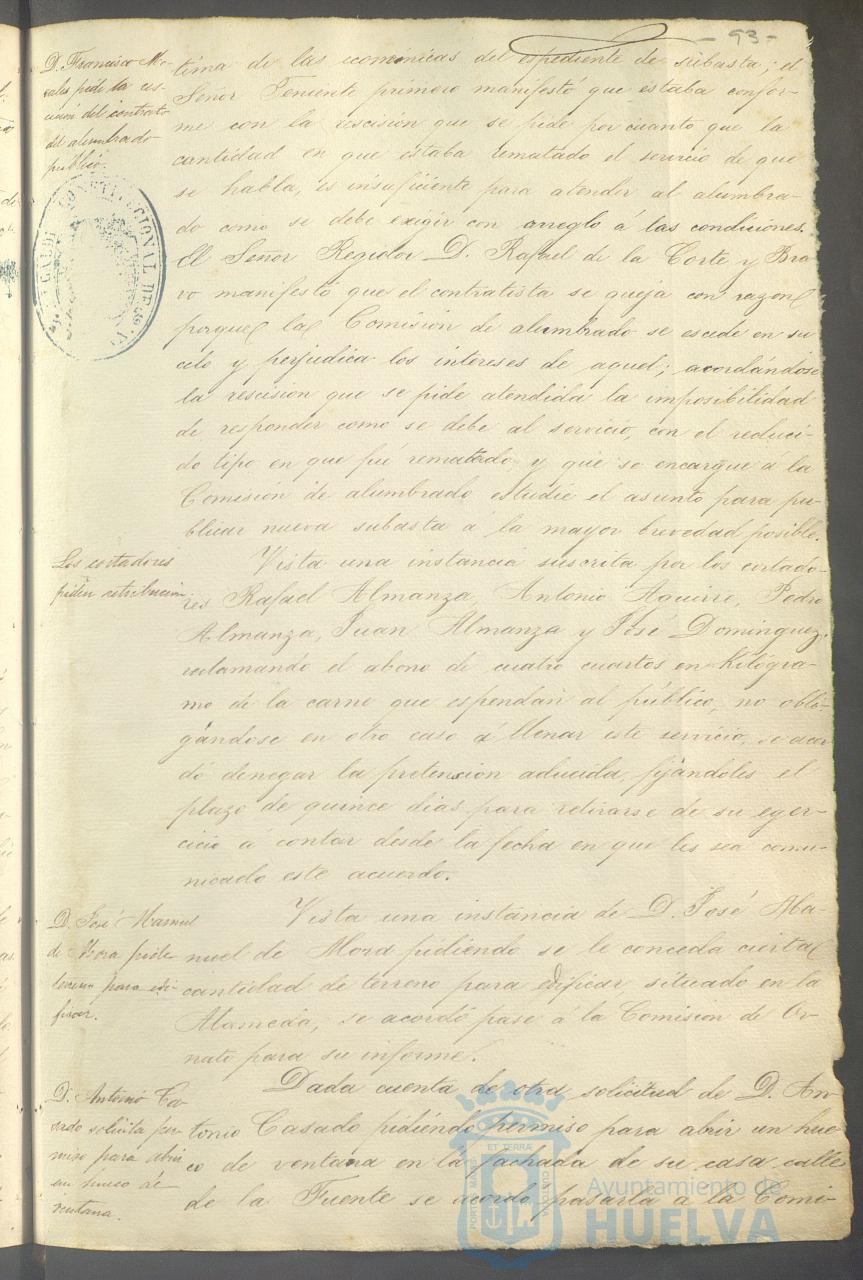 - 93 -
D. Francisco Mo-
rales pide la res-
cisión del contrato
del alumbrado
publico.
tima de las económicas del espediente de subasta; el
Señor Teniente primero manifestó que estaba confor-
me con la rescisión que se pide por cuanto que la
cantidad en que estaba rematado el servicio de que
se habla, es insuficiente para atender al alumbra-
do como se debe exigir con arreglo á las condiciones.
El Señor Regidor D. Rafael de la Corte y Bra-
vo manifestó que el contratista se queja con razon
porque la Comisión de alumbrado se escede en su
celo y perjudica los intereses de aquel; acordándose
la rescision que se pide atendida la imposibilidad
de responder como se debe al servicio, con el reduci-
do tipo en que fué rematado y que se encargue á la
Comisión de alumbrado estudie el asunto para pu-
blicar nueva subasta á la mayor brevedad posible.
Los cortadores
piden retribucion.
Vista una instancia suscrita por los cortado-
res Rafael Almanza, Antonio Aguirre, Pedro
Almanza, Juan Almanza y José Dominguez,
reclamando el abono de cuatro cuartos en Kilógra-
mo de la carne que espendan al público, no obli-
gándose en otro caso á llenar este servicio, se acor-
dó denegar la pretension aducida, fijándoles el
plazo de quince dias para retirarse de su eger-
cicio á contar desde la fecha en que les sea comu-
nicado este acuerdo.
D. José Manuel
de Mora pide
terreno para edi-
ficar.
Vista una instancia de D. José Ma-
nuel de Mora pidiendo se le conceda cierta
cantidad de terreno para edificar, situado en la
Alameda, se acordó pase á la Comision de Or-
nato para su informe.
D. Antonio Ca-
sado solicita per-
miso para abrir
un hueco de
ventana.
Dada cuenta de otra solicitud de D. An-
tonio Casado pidiendo permiso para abrir un hue-
co de ventana en la fachada de su casa calle
de la Fuente se acordó pasarla á la Comi-
Ayuntamiento de
HUELVA